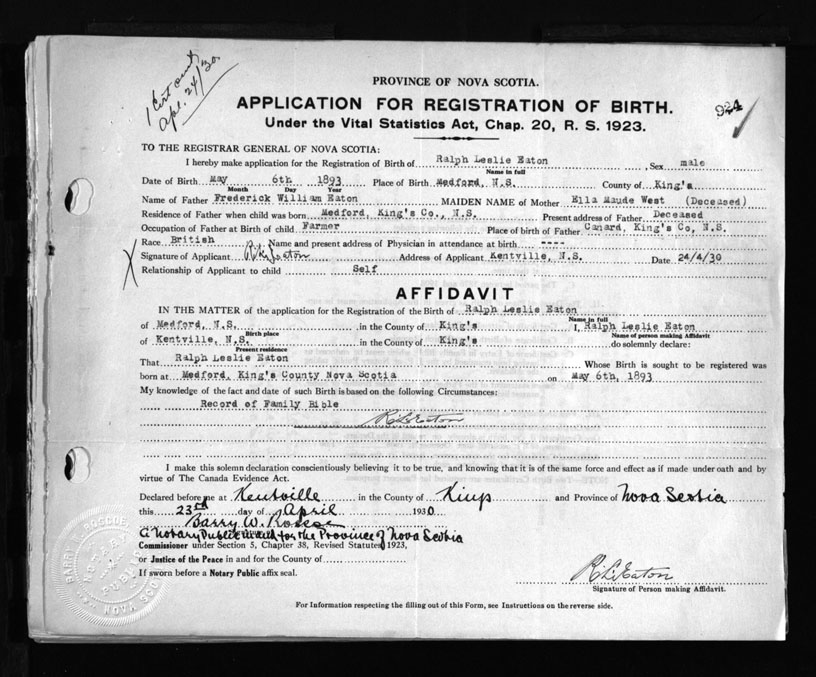 1 Cert
Apl. 24/30.
PROVINCE OF NOVA SCOTIA.
APPLICATION FOR REGISTRATION OF BIRTH. 924
Under the Vital Statistics Act, Chap. 20, R. S. 1923.
TO THE REGISTRAR GENERAL OF NOVA SCOTIA:
I hereby make application for the Registration of Birth of Ralph Leslie Eaton, Sex male
Name in full
Date of Birth May 6th 1893 Place of Birth Medford, N.S. County of King's
Month Day Year
Name of Father Frederick William Eaton MAIDEN NAME of Mother Ella Maude West (Deceased)
Residence of Father when child was born Medford, King's Co., N.S. Present address of Father Deceased
Occupation of Father at Birth of child Farmer Place of birth of Father Canard, King's Co, N.S.
Race British Name and present address of Physician in attendance at birth ----
Signature of Applicant R. L. Eaton Address of Applicant Kentville, N.S. Date 24/4/30
Relationship of Applicant to child Self
AFFIDAVIT
IN THE MATTER of the application for the Registration of the Birth of Ralph Leslie Eaton
Name in full
of Medford, N.S. in the County of King's I, Ralph Leslie Eaton
Birth place Name of person making Affidavit
of Kentville, N.S. in the County of King's do solemnly declare:
Present residence
That Ralph Leslie Eaton Whose Birth is sought to be registered was
born at Medford, King's County Nova Scotia on May 6th, 1893
My knowledge of the fact and date of such Birth is based on the following Circumstances:
Record of Family Bible
R. L. Eaton
I make this solemn declaration conscientiously believing it to be true, and knowing that it is of the same force and effect as if made under oath and by
virtue of The Canada Evidence Act.
Declared before me at Kentville in the County of Kings and Province of Nova Scotia
this 23rd day of April 1930
Barry W. Roscoe
A Notary Public in and for the Province of Nova Scotia
Commissioner under Section 5, Chapter 38, Revised Statutes 1923,
or Justice of the Peace in and for the County of
If sworn before a Notary Public affix seal.
R. L. Eaton
Signature of Person making Affidavit.
For Information respecting the filling out of this Form, see Instructions on the reverse side.
BARRY W. ROSCOE
NOTARY
PUBLIC
NOVA SCOTIA